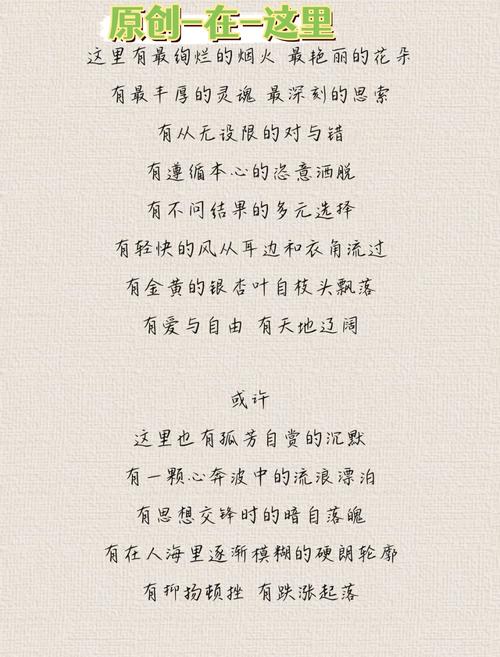 原创-在-这里
这里有最绚烂的烟火 最艳丽的花朵
有最丰厚的灵魂 最深刻的思索
有从无设限的对与错
有遵循本心的恣意洒脱
有不问结果的多元选择
有轻快的风从耳边和衣角流过
有金黄的银杏叶自枝头飘落
有爱与自由 有天地辽阔
或许
这里也有孤芳自赏的沉默
有一颗心奔波中的流浪漂泊
有思想交锋时的暗自落魄
有在人海里逐渐模糊的硬朗轮廓
有抑扬顿挫 有跌涨起落